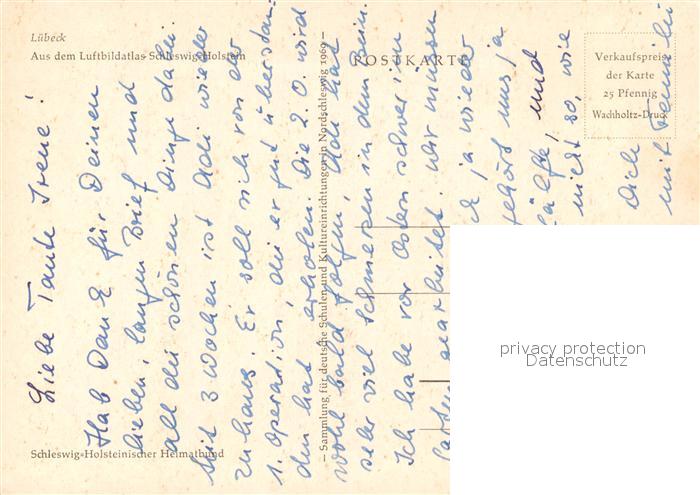 Lübeck
Aus dem Luftbildatlas Schleswig-Holstein
POSTKARTE
Verkaufspreis
der Karte
25 Pfennig
Wachholtz-Druck
— Sammlung für deutsche Schulen und Kultureinrichtungen in Nordschleswig 1960 —
Schleswig-Holsteinischer Heimatbund
Liebe Tante Irene!
Hab Dank für Deinen
lieben, langen Brief und
all die schönen Dinge dabei.
Seit 3 Wochen ist Adi wieder
zu haus. Er soll sich von der
1. Operation, die er gut überstan-
den hat erholen. Die 2. O. wird
wohl bald folgen, Adi hat
sehr viel Schmerzen in dem Bein.
Ich habe vor Ostern schwer im
Garten gearbeitet. Wir müssen
ja wieder
gehört uns ja
Hälfte, und
nicht so, wie
Dich
mit Familie
privacy protection
Datenschutz